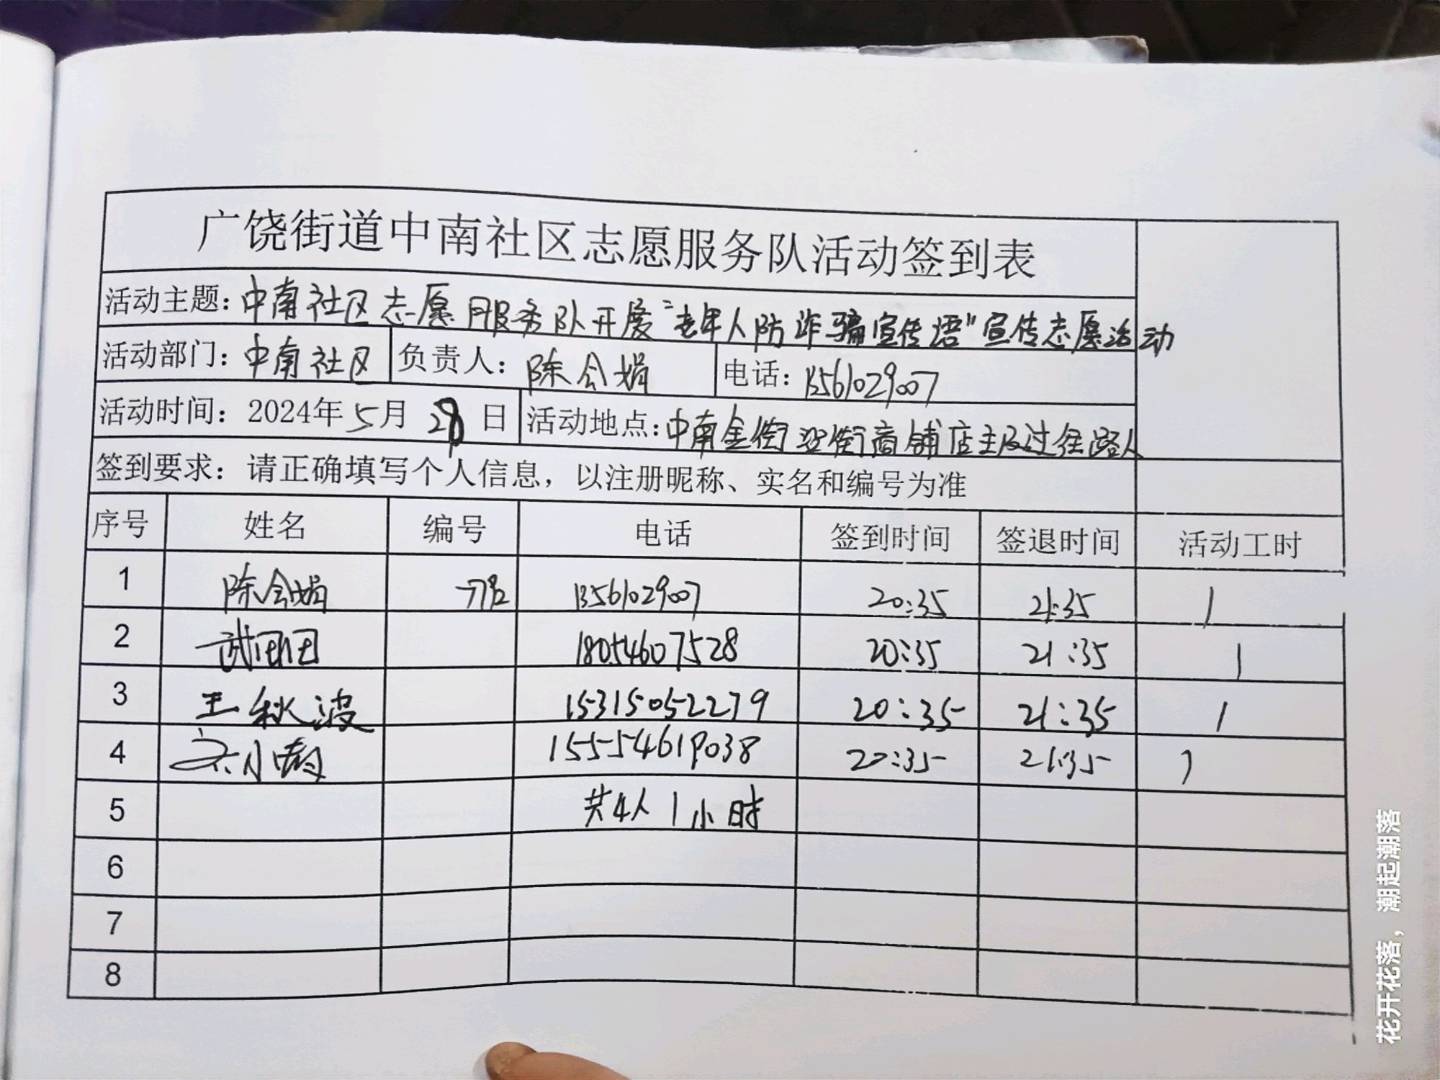 广饶街道中南社区志愿服务队活动签到表
活动主题：中南社区志愿服务队开展"老年人防诈骗宣传语"宣传志愿活动
活动部门：中南社区 负责人：陈会娟 电话：13561029007
活动时间：2024年5月28日 活动地点：中南金街沿街商铺店主及过往路人
签到要求：请正确填写个人信息，以注册昵称、实名和编号为准
序号 姓名 编号 电话 签到时间 签退时间 活动工时
1 陈会娟 13561029007 20:35 21:35 1
2 武团团 18054607528 20:35 21:35 1
3 王秋波 15315052279 20:35 21:35 1
4 15554619038 20:35 21:35 1
5 共4人1小时
6
7
8
花开花落，潮起潮落